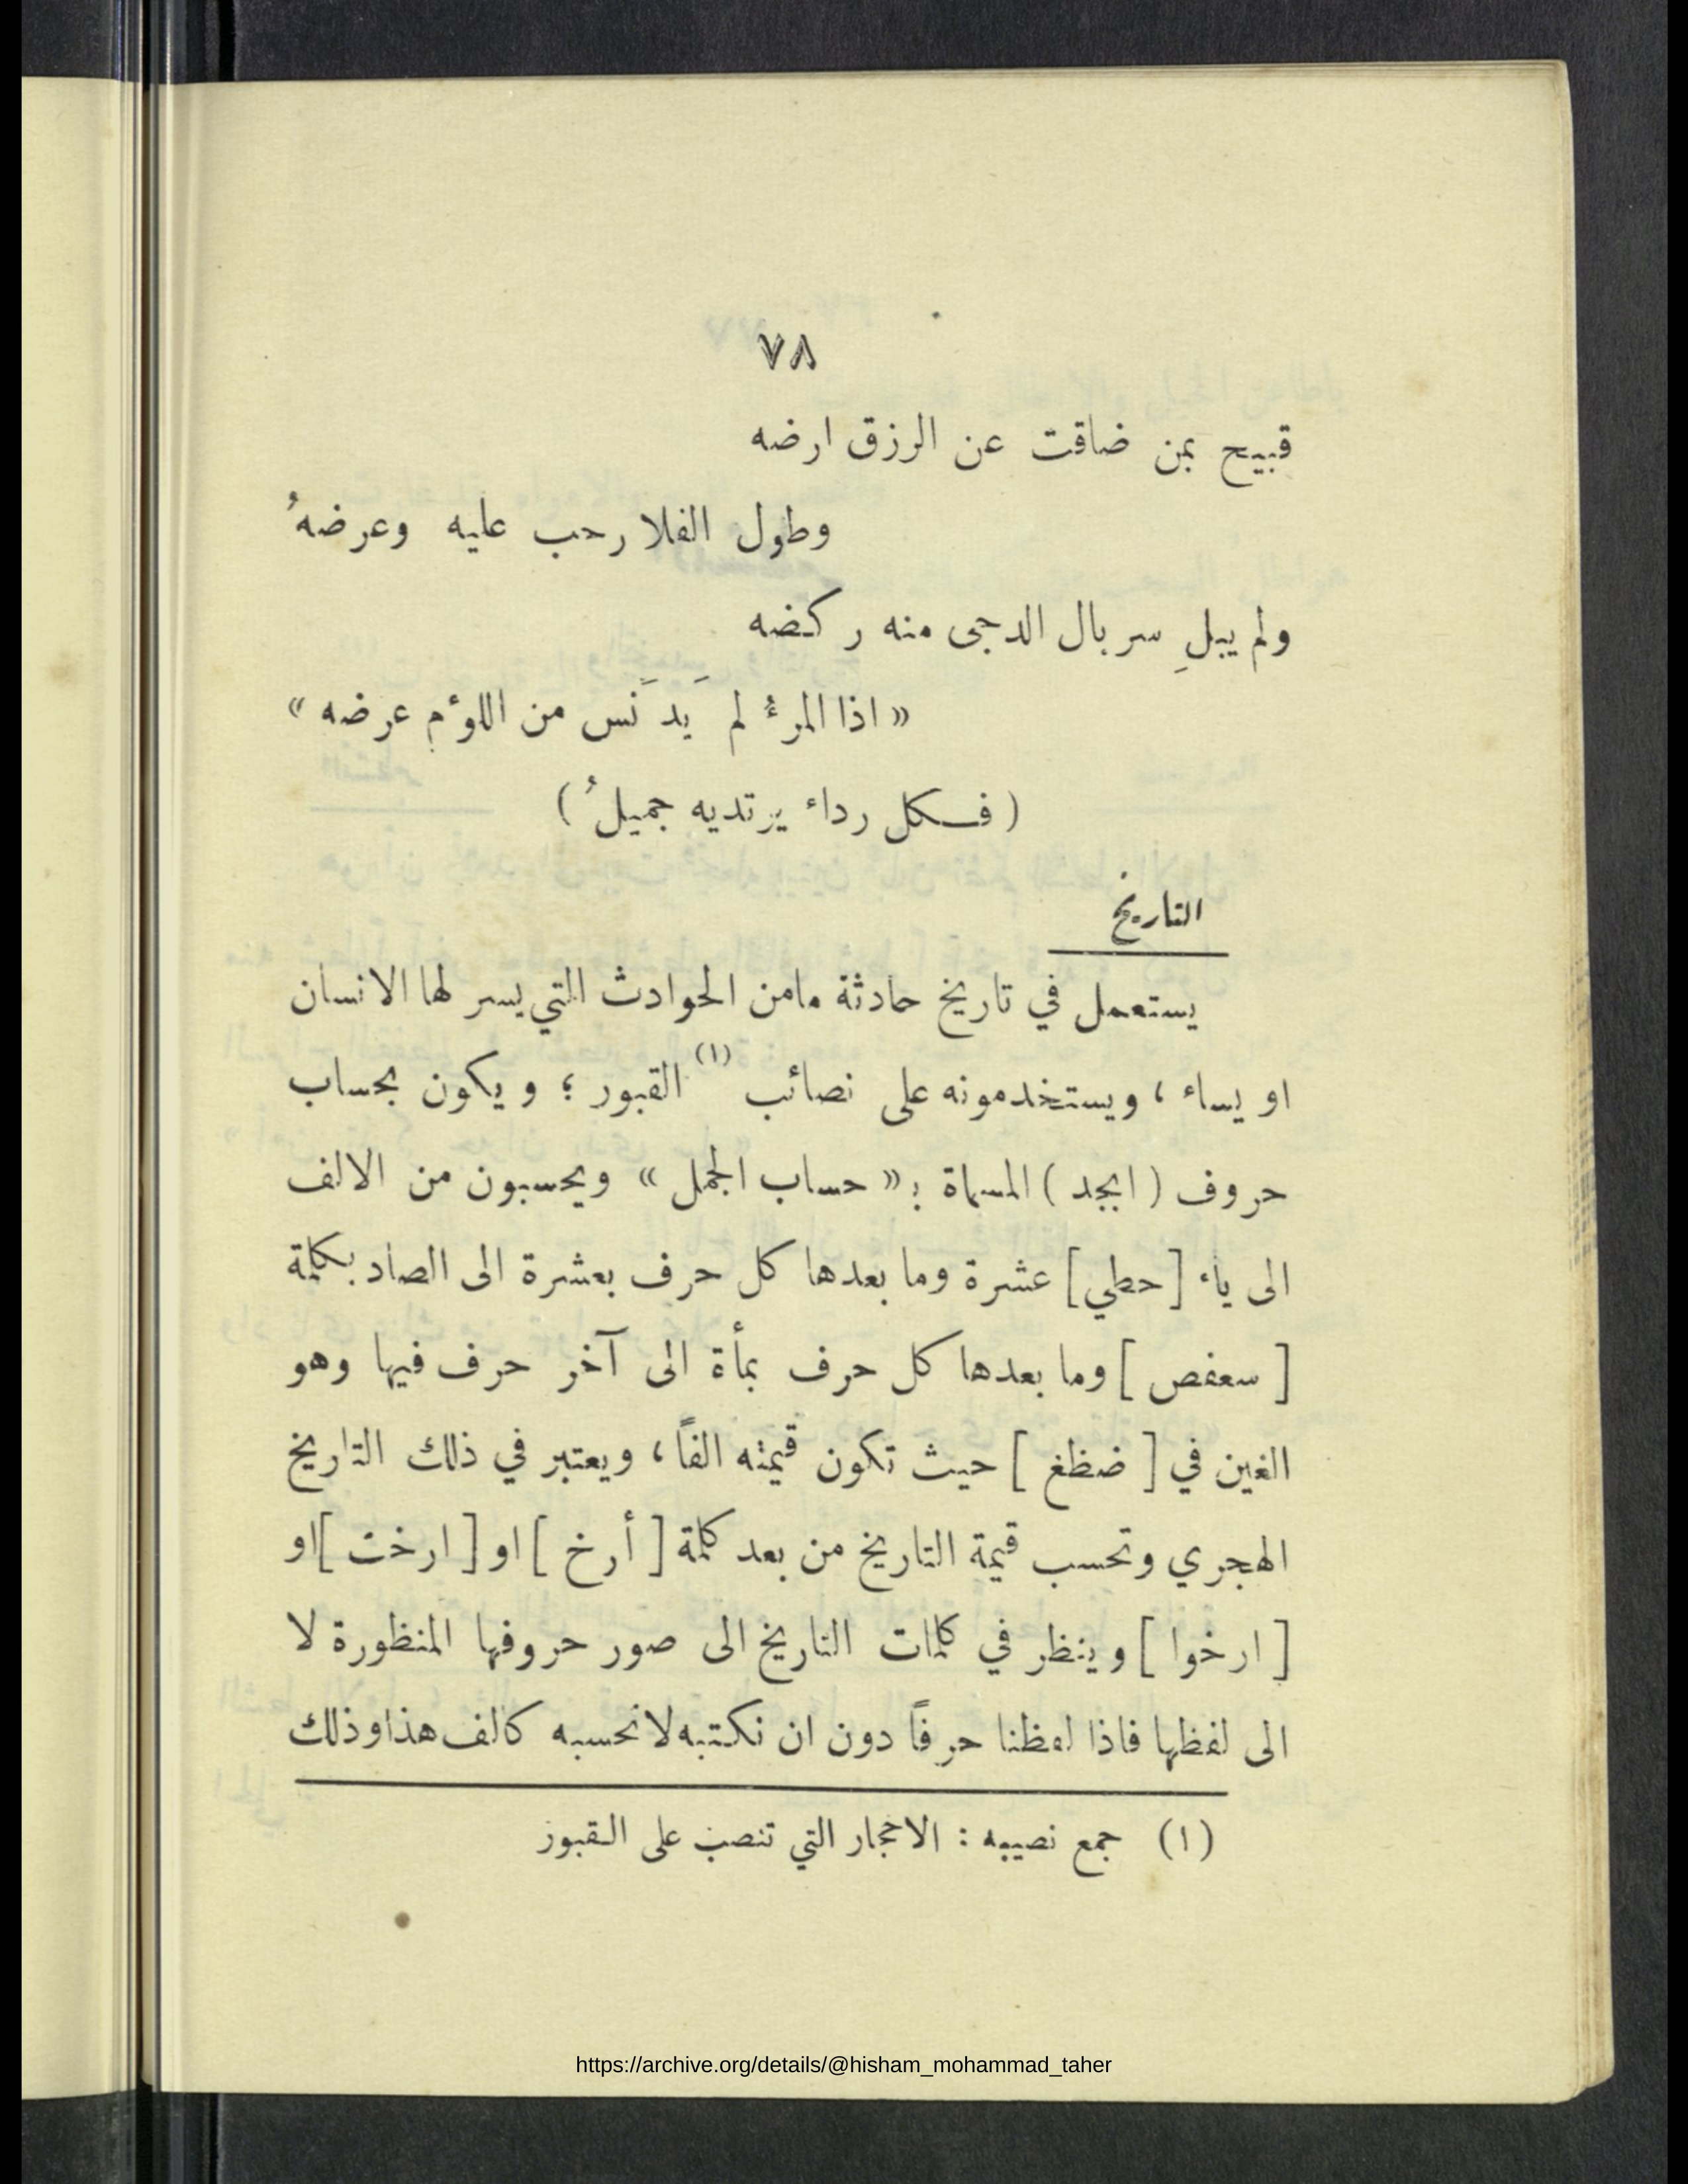 ٧٨
قبيح بمن ضاقت عن الرزق ارضه
وطول الفلا رحب عليه وعرضهُ
ولم يبلِ سربال الدجى منه ركضه
« اذا المرءُ لم يَدنَس من اللؤم عرضه »
( فكل رداء يرتديه جميلُ )
التاريخ
يستعمل في تاريخ حادثة مامن الحوادث التي يسر لها الانسان
او يساء ، ويستخدمونه على نصائب (١) القبور ؛ ويكون بحساب
حروف ( ابجد ) المسماة بـ « حساب الجمل » ويحسبون من الالف
الى ياء [ حطي ] عشرة وما بعدها كل حرف بعشرة الى الصاد بكلمة
[ سعفص ] وما بعدها كل حرف بمأة الى آخر حرف فيها وهو
الغين في [ ضظغ ] حيث تكون قيمته الفاً ، ويعتبر في ذلك التاريخ
الهجري وتحسب قيمة التاريخ من بعد كلمة [ أرخ ] او [ ارخت ] او
[ ارخوا ] وينظر في كلمات التاريخ الى صور حروفها المنظورة لا
الى لفظها فاذا لفظنا حرفاً دون ان نكتبه لانحسبه كالف هذا وذلك
(١) جمع نصيبه : الاحجار التي تنصب على القبور
https://archive.org/details/@hisham_mohammad_taher